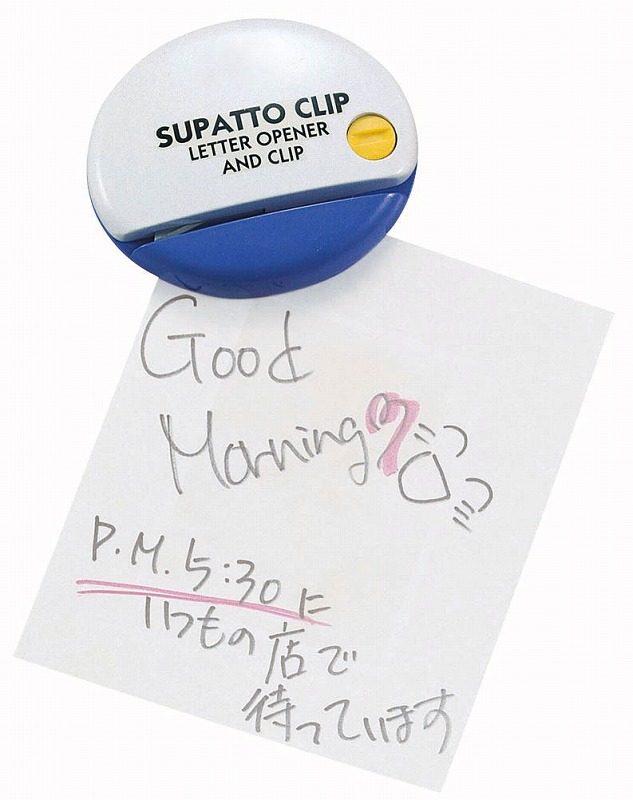 SUPATTO CLIP
LETTER OPENER
AND CLIP
Good
Morning
P.M. 5:30 に
いつもの店で
待っています